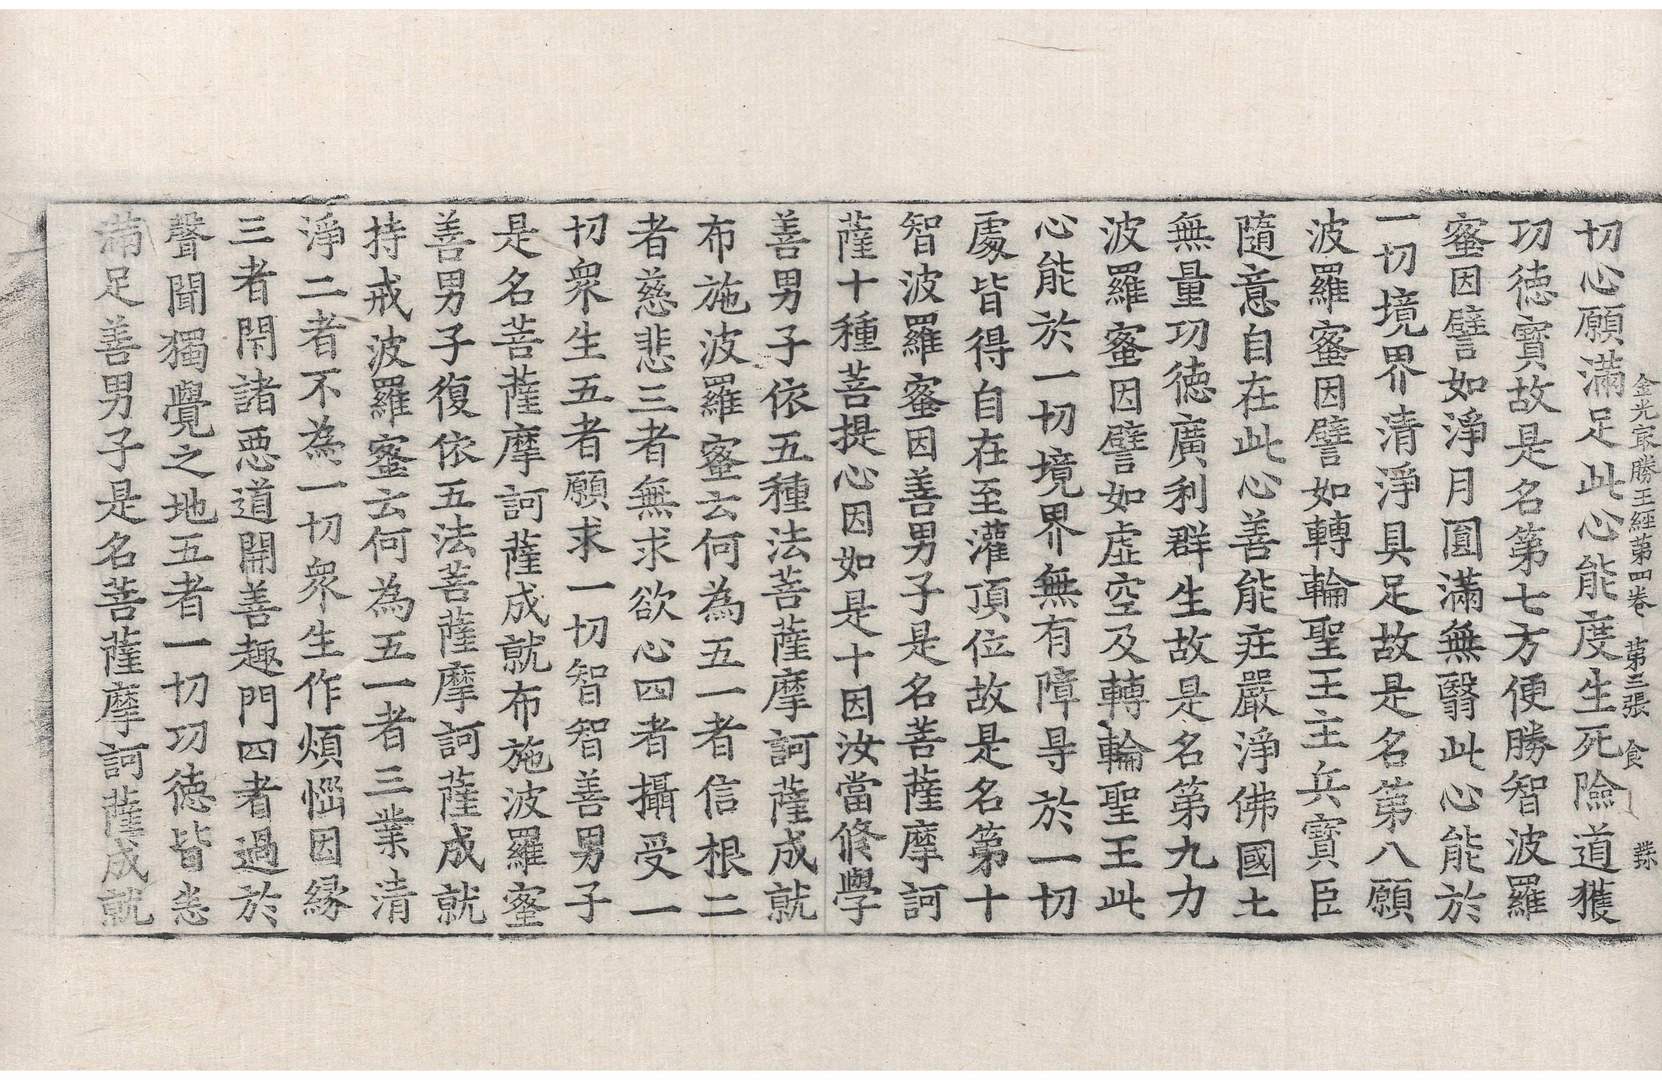 金光㝡勝王經第四卷　第三張　食
切心願滿足此心能度生死險道獲
功德寶故是名第七方便勝智波羅
蜜因譬如淨月圓滿無翳此心能於
一切境界清淨具足故是名第八願
波羅蜜因譬如轉輪聖王主兵寶臣
隨意自在此心善能庄嚴淨佛國土
無量功德廣利群生故是名第九力
波羅蜜因譬如虛空及轉輪聖王此
心能於一切境界無有障㝵於一切
處皆得自在至灌頂位故是名第十
智波羅蜜因善男子是名菩薩摩訶
薩十種菩提心因如是十因汝當修學
善男子依五種法菩薩摩訶薩成就
布施波羅蜜云何為五一者信根二
者慈悲三者無求欲心四者攝受一
切衆生五者願求一切智智善男子
是名菩薩摩訶薩成就布施波羅蜜
善男子復依五法菩薩摩訶薩成就
持戒波羅蜜云何為五一者三業清
淨二者不為一切衆生作煩惱因縁
三者閇諸惡道開善趣門四者過於
聲聞獨覺之地五者一切功德皆悉
滿足善男子是名菩薩摩訶薩成就